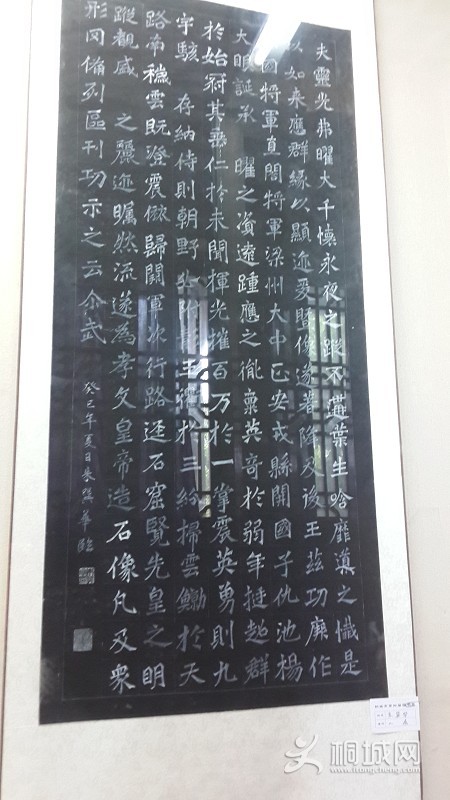 夫靈光弗曜大千懷永夜之蹤不遘葉生唅靡導之懺是
以如来應群緣以顯迹爰暨像遂著降及後王茲功厥作
國將軍直閤將軍梁州大中正安戎縣開國子仇池楊
大眼誕承 曜之資遠踵應之胤禀英奇於弱年挺超群
於始冠其垂仁於未聞揮光摧百万於一掌震英勇則九
宇駭 存納侍則朝野 附 王衢於三紛掃雲鯨於天
路南穢雲既澄震旅歸闕軍次行路逕石窟覽先皇之明
蹤覩盛 之麗迹矚然流遂為孝文皇帝造石像凡及衆
形罔俻列區刊功示之云尒武
癸巳年夏日朱 華臨
桐城网
www.itongcheng.com